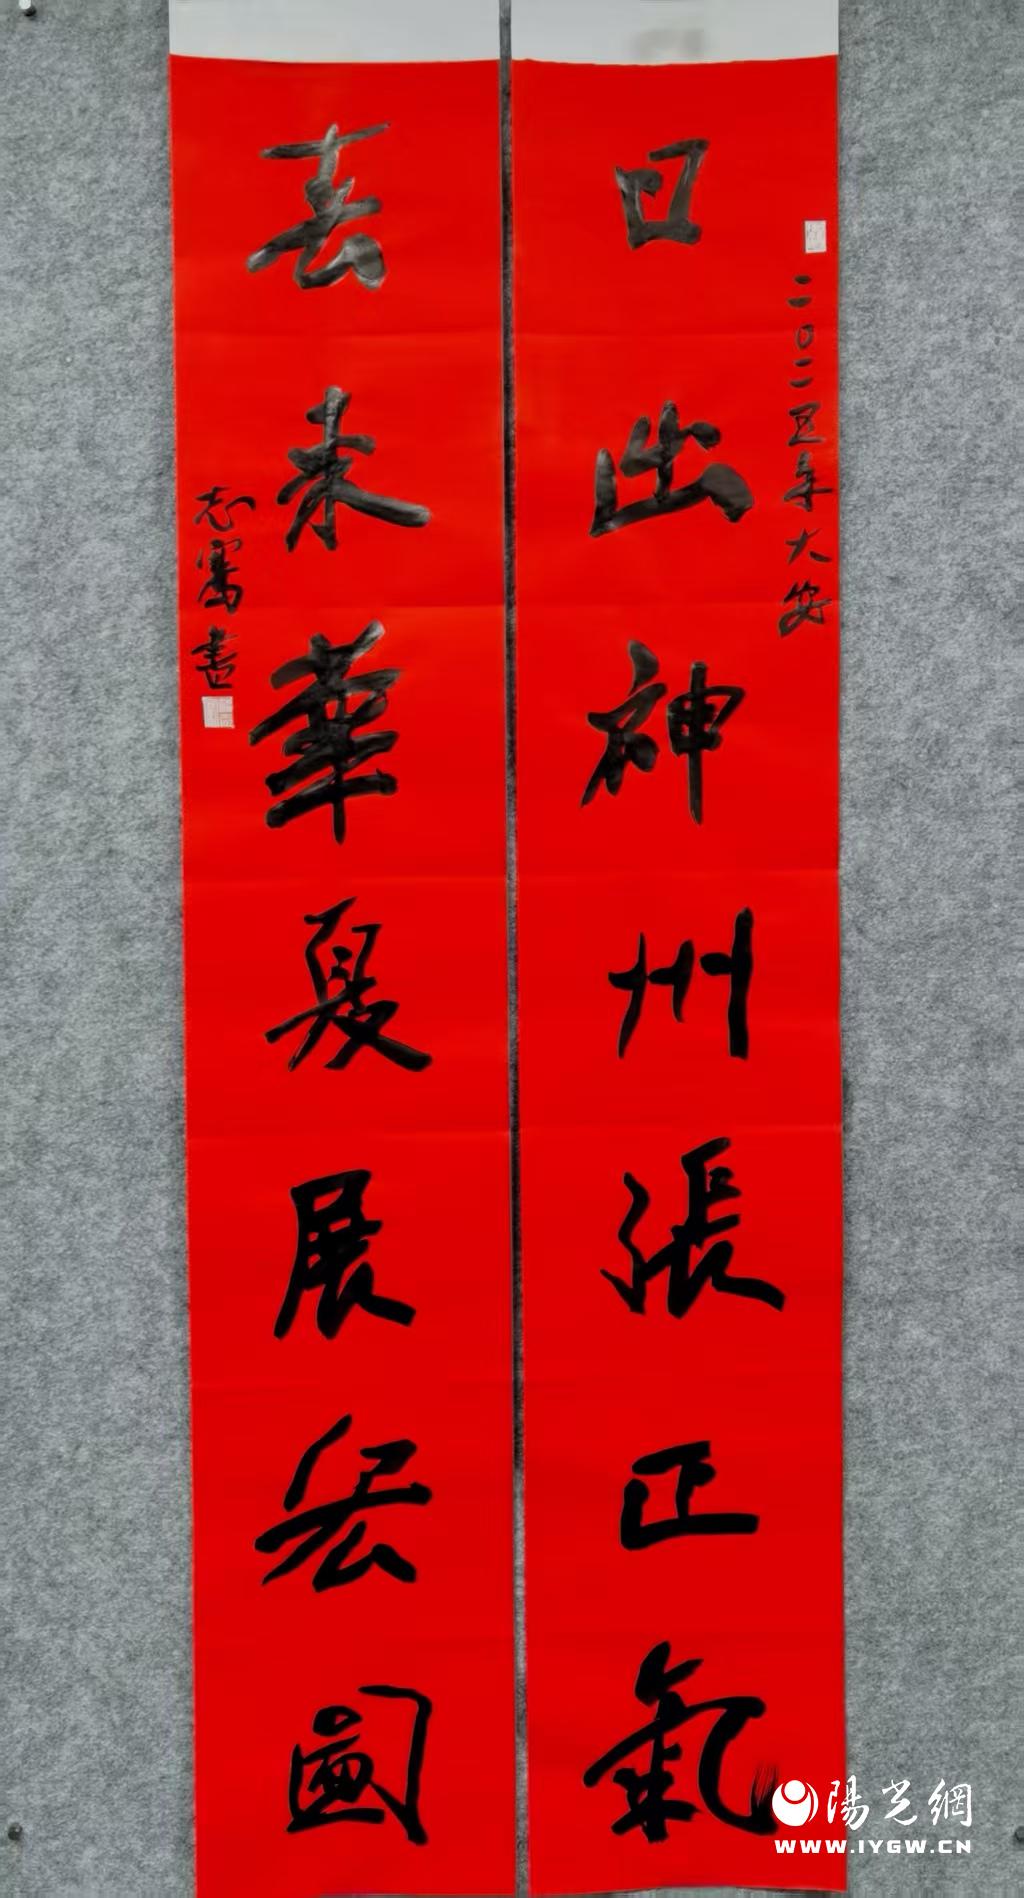 日出神州張正氣
二〇二五年大安
喜来華夏展宏圖
志寫書
陽光網
WWW.IYGW.CN